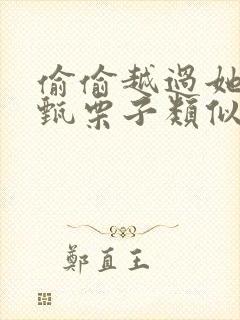 偷偷越過她
甄栗子類似
鄭直王